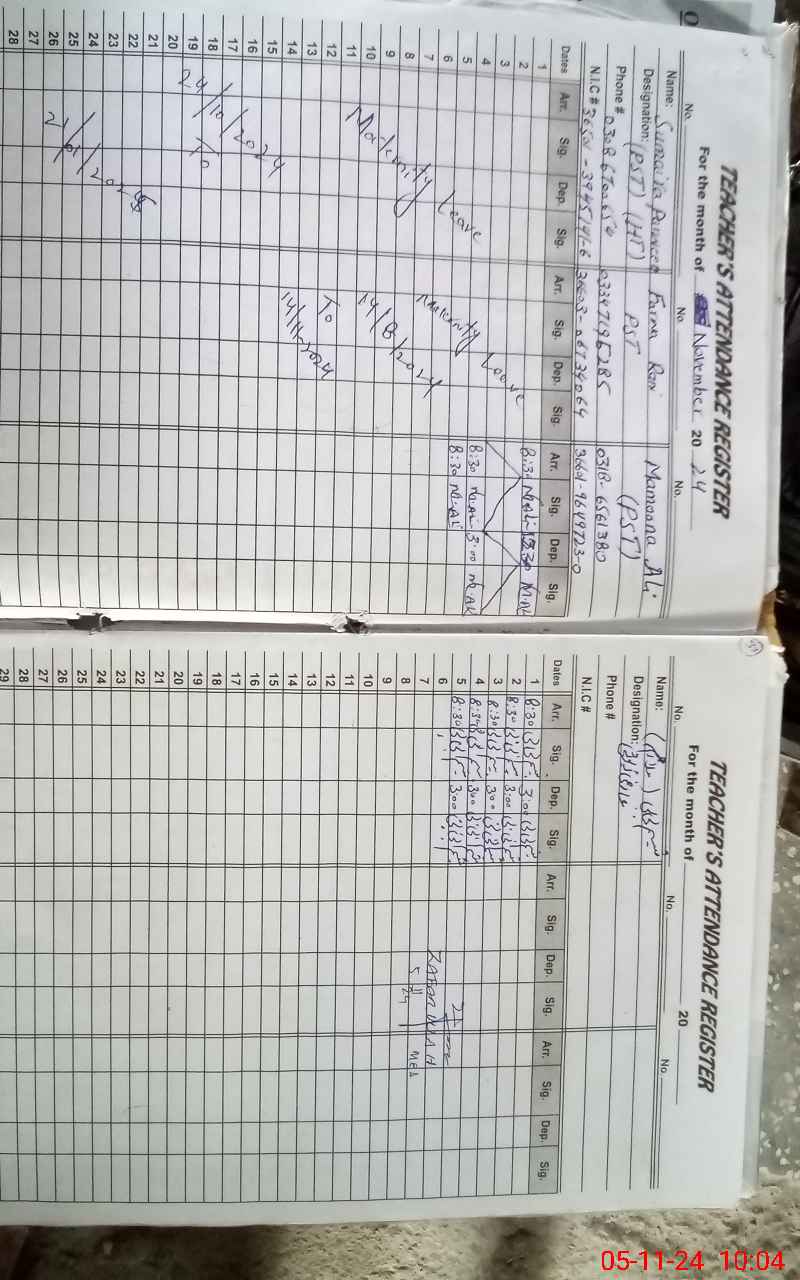 TEACHER'S ATTENDANCE REGISTER
For the month of November 20 24
No. No. No.
Name: Sumaira Parveen Farwa Rani Mamoona Ali
Designation: (PST) (HT) PST (PST)
Phone # 0308 6700650 03347195285 0318-6561380
N.I.C # 36501-3945741-6
Dates Arr. Sig. Dep. Sig. Arr. Sig. Dep. Sig. Arr. Sig. Dep. Sig.
1 8:30 M.Ali M.Ali
2
3
4 8:30 M.Ali 3:00 M.Ali
5 8:30 M.Ali
6
7
8
9
10
11
12
13
14
15
16
17
18
19
20
21
22
23
24
25
26
27
28
Maternity Leave
24/10/2024
To
Maternity Leave
14/8/2024
To
14/11/2024
TEACHER'S ATTENDANCE REGISTER
For the month of 20
No. No. No.
Name:
Designation:
Phone #
N.I.C #
Dates Arr. Sig. Dep. Sig. Arr. Sig. Dep. Sig. Arr. Sig. Dep. Sig.
1 8:30 3:00
2 8:30 3:00
3 8:30 3:00
4 8:30 3:00
5 8:30 3:00
6
7
8
9
10
11
12
13
14
15
16
17
18
19
20
21
22
23
24
25
26
27
28
29
ZAFAR ULLAH
5 11 24 MEA
05-11-24 10:04